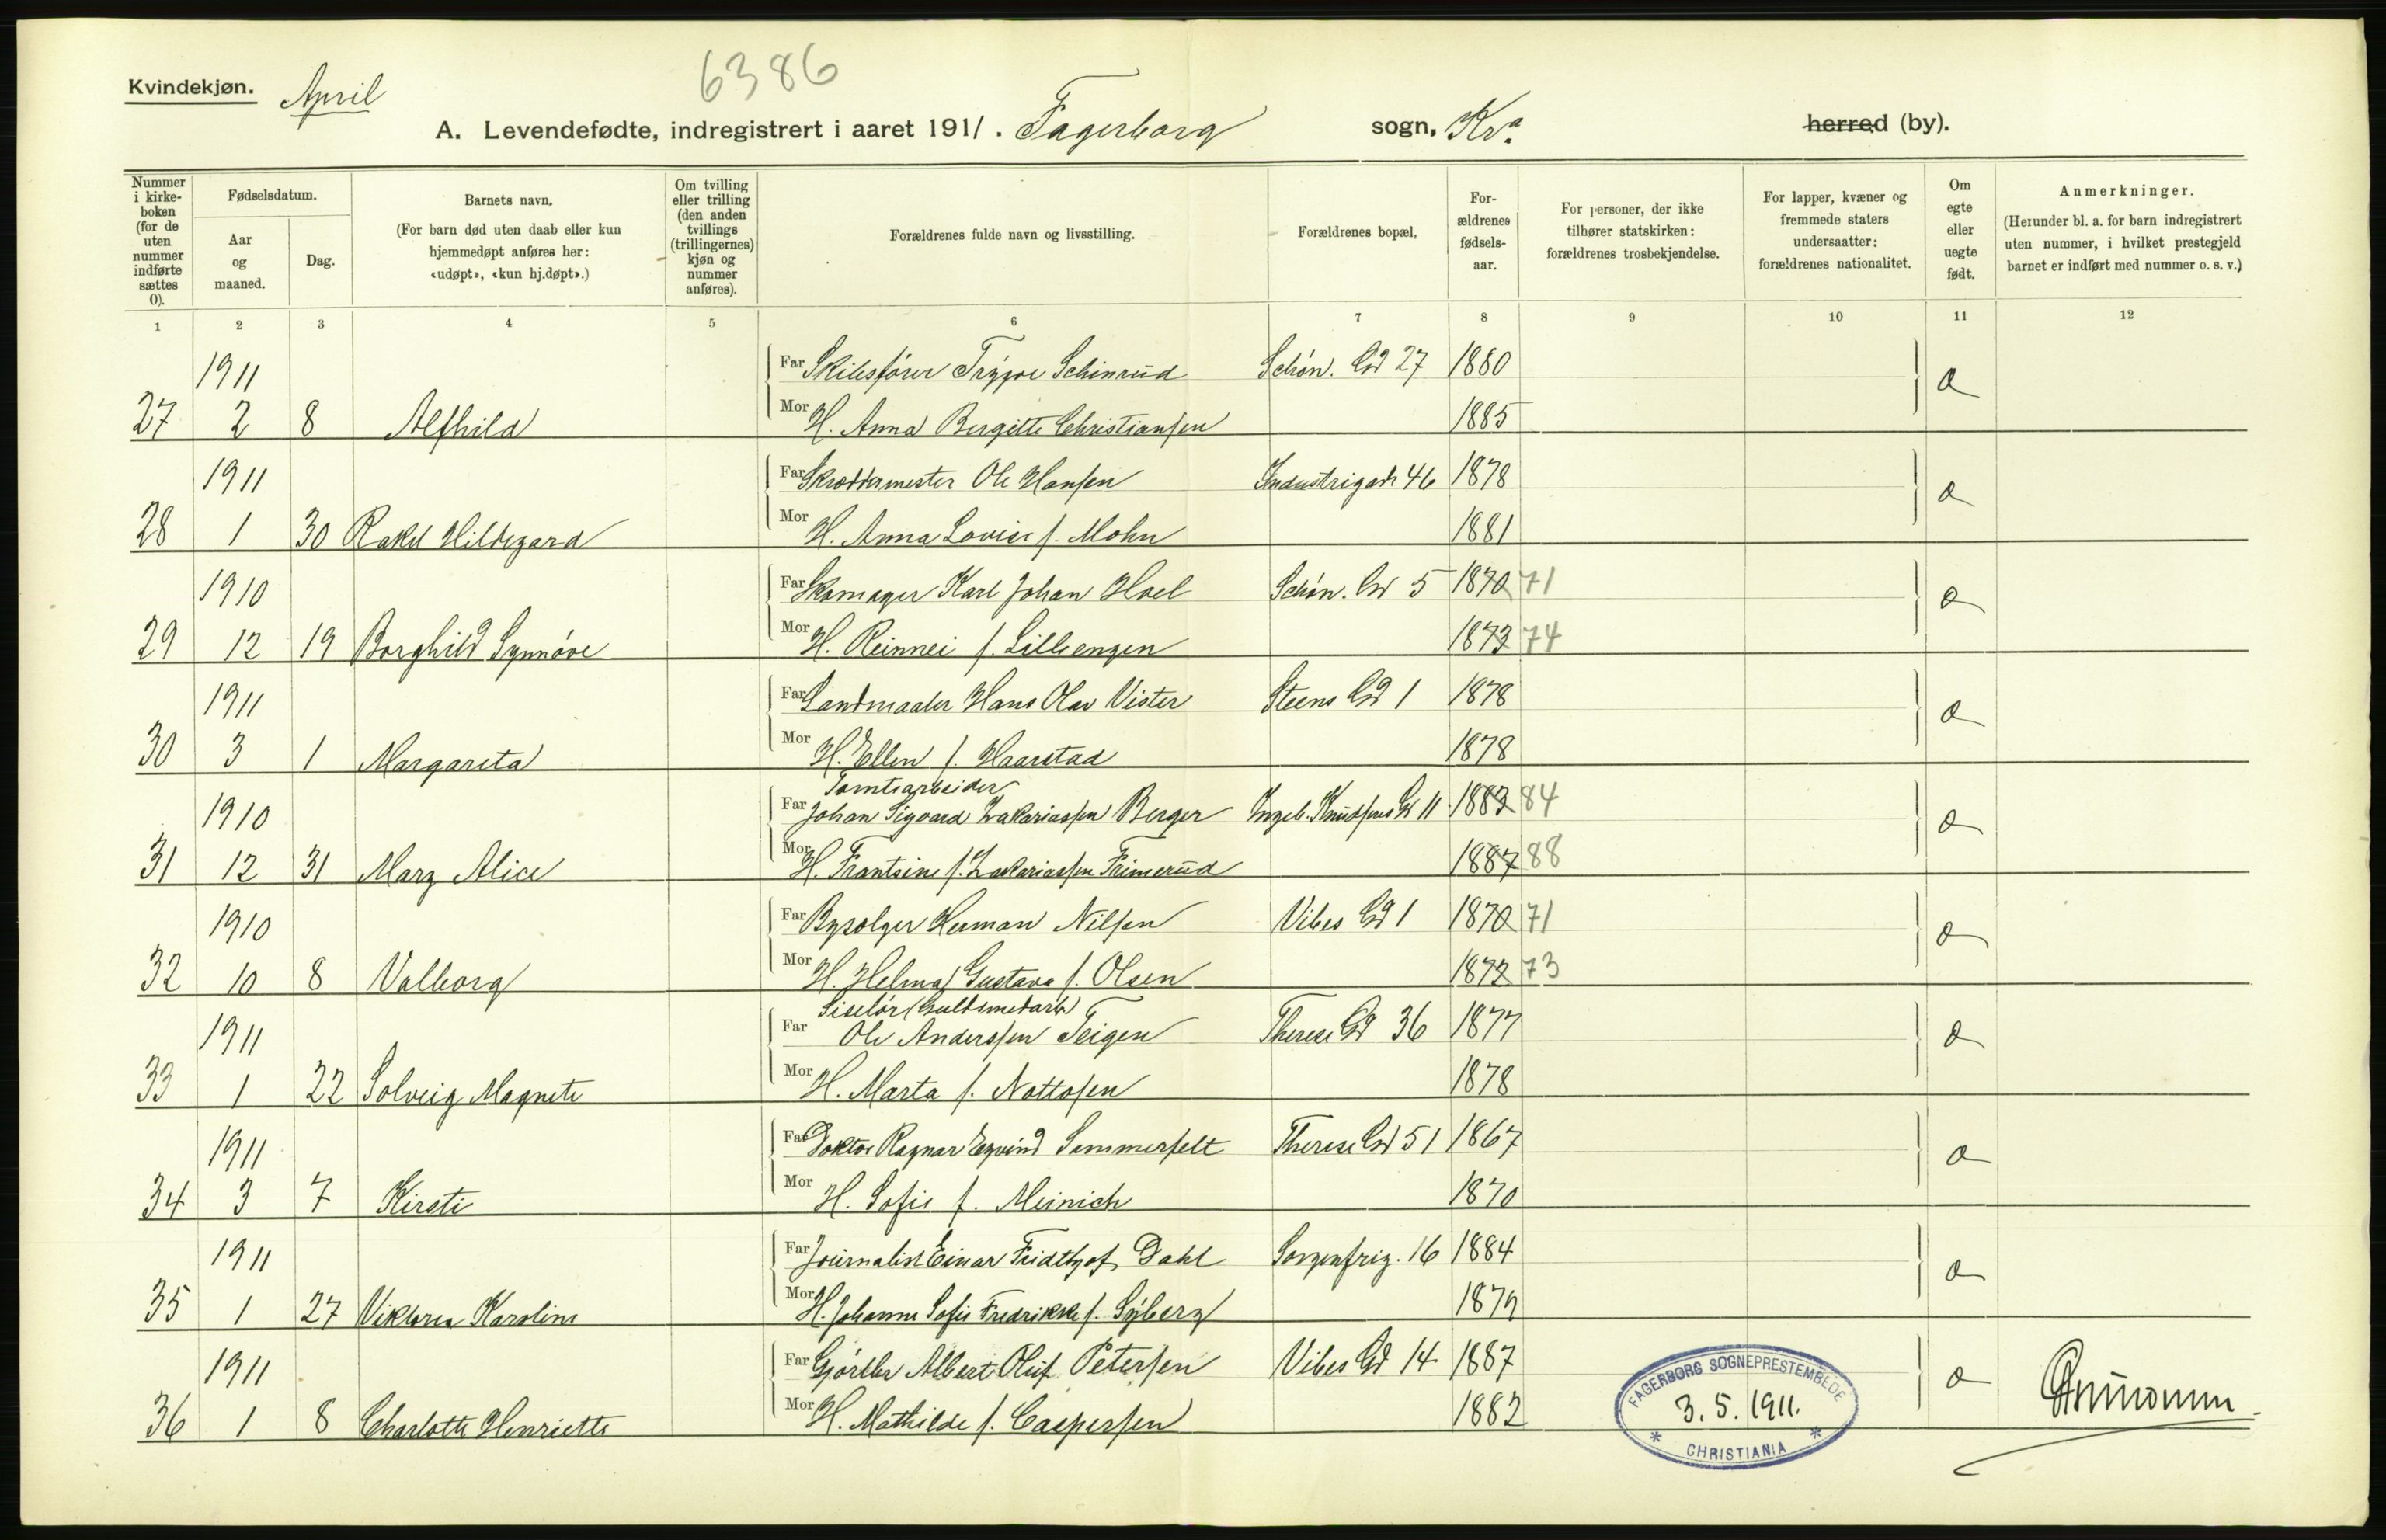 Kvindekjøn. April
6386
A. Levendefødte, indregistrert i aaret 1911. Fagerborg sogn, Kra. herred (by).
Nummer i kirkeboken (for de uten nummer indførte sættes 0).
Fødselsdatum.
Aar og maaned.
Dag.
Barnets navn.
(For barn død uten daab eller kun hjemmedøpt anføres her: «udøpt», «kun hj.døpt».)
Om tvilling eller trilling (den anden tvillings (trillingernes) kjøn og nummer anføres).
Forældrenes fulde navn og livsstilling.
Forældrenes bopæl,
Forældrenes fødselsaar.
For personer, der ikke tilhører statskirken: forældrenes trosbekjendelse.
For lapper, kvæner og fremmede staters undersaatter: forældrenes nationalitet.
Om egte eller uegte født.
Anmerkninger.
(Herunder bl. a. for barn indregistrert uten nummer, i hvilket prestegjeld barnet er indført med nummer o. s. v.)
1 2 3 4 5 6 7 8 9 10 11 12
1911 Far Skibsfører Trygve Schinrud Schøn. Gd 27 1880
27 2 8 Alfhild Mor H. Anna Bergitte Christiansen 1885
1911 Far Skræddermester Ole Hansen Industrigade 46 1878
28 1 30 Rakel Hildegard Mor H. Anna Lovise f. Mohn 1881
1910 Far Skomager Karl Johan Hoel Schøn. Gd 5 1870 71
29 12 19 Borghild Synnøve Mor H. Reinnei f. Lilleengen 1873 74
1911 Far Landmaaler Hans Olav Vister Steens Gd 1 1878
30 3 1 Margareta Mor H. Ellen f. Haarstad 1878
Tomtearbeider
1910 Far Johan Sigvard Zakariassen Berger Ingeb. Knudsens Gd 11 1883 84
31 12 31 Mary Alice Mor H. Frantsine f. Zakariassen Frimerud 1887 88
1910 Far Bysolger Herman Nilsen Vibes Gd 1 1870 71
32 10 8 Valborg Mor H. Helma Gustava f. Olsen 1872 73
Siselør (Guldsmedarb)
1911 Far Ole Anderssen Teigen Therese Gd 36 1877
33 1 22 Solveig Magnete Mor H. Marta f. Nottosen 1878
1911 Far Doktor Ragnar Eyvind Sommerfelt Therese Gd 51 1867
34 3 7 Kirsti Mor H. Sofie f. Meinich 1870
1911 Far Journalist Einar Fridthjof Dahl Sorgenfrig. 16 1884
35 1 27 Viktoria Karoline Mor H. Johanne Sofie Fredrikke f. Syberg 1879
1911 Far Gjørtler Albert Oluf Petersen Vibes Gd 14 1887
36 1 8 Charlotte Henriette Mor H. Mathilde f. Caspersen 1882
FAGERBORG SOGNEPRESTEMBEDE
3.5.1911.
* CHRISTIANIA *